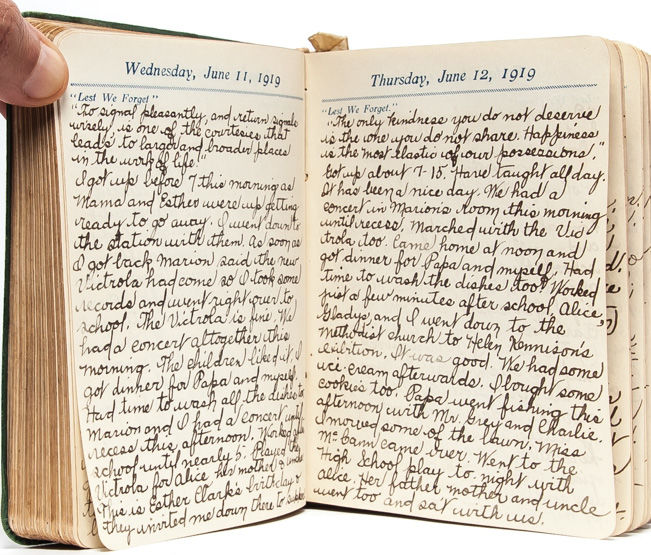 Wednesday, June 11, 1919
"Lest We Forget"
"To signal pleasantly, and return signals
wisely is one of the courtesies that
leads to larger and broader places
in the work of life."
I got up before 7 this morning as
Mama and Esther were up getting
ready to go away. I went down to
the station with them. As soon as
I got back Marion said the new
Victrola had come so I took some
records and went right over to
school. The Victrola is fine. We
had a concert altogether this
morning. The children liked it. I
got dinner for Papa and myself.
Had time to wash all the dishes too
Marion and I had a concert until
recess this afternoon. Worked
school until nearly 5. Played the
Victrola for Alice her mother & uncle
This is Esther Clark's birthday &
they invited me down there to
Thursday, June 12, 1919
"Lest We Forget."
"The only kindness you do not deserve
is the one you do not share. Happiness
is the most elastic of our possessions."
Got up about 7-15. Have taught all day.
It has been a nice day. We had a
concert in Marion's room this morning
until recess. Marched with the Vic
trola too. Came home at noon and
got dinner for Papa and myself. Had
time to wash the dishes too. Worked
just a few minutes after school. Alice,
Gladys, and I went down to the
Methodist church to Helen Kennison's
exibition. It was good. We had some
ice-cream afterwards. I bought some
cookies too. Papa went fishing this
afternoon with Mr. Grey and Charlie.
I mowed some of the lawn. Miss
McCann came over. Went to the
High School play to-night with
Alice. Her father mother and uncle
went too and sat with us.